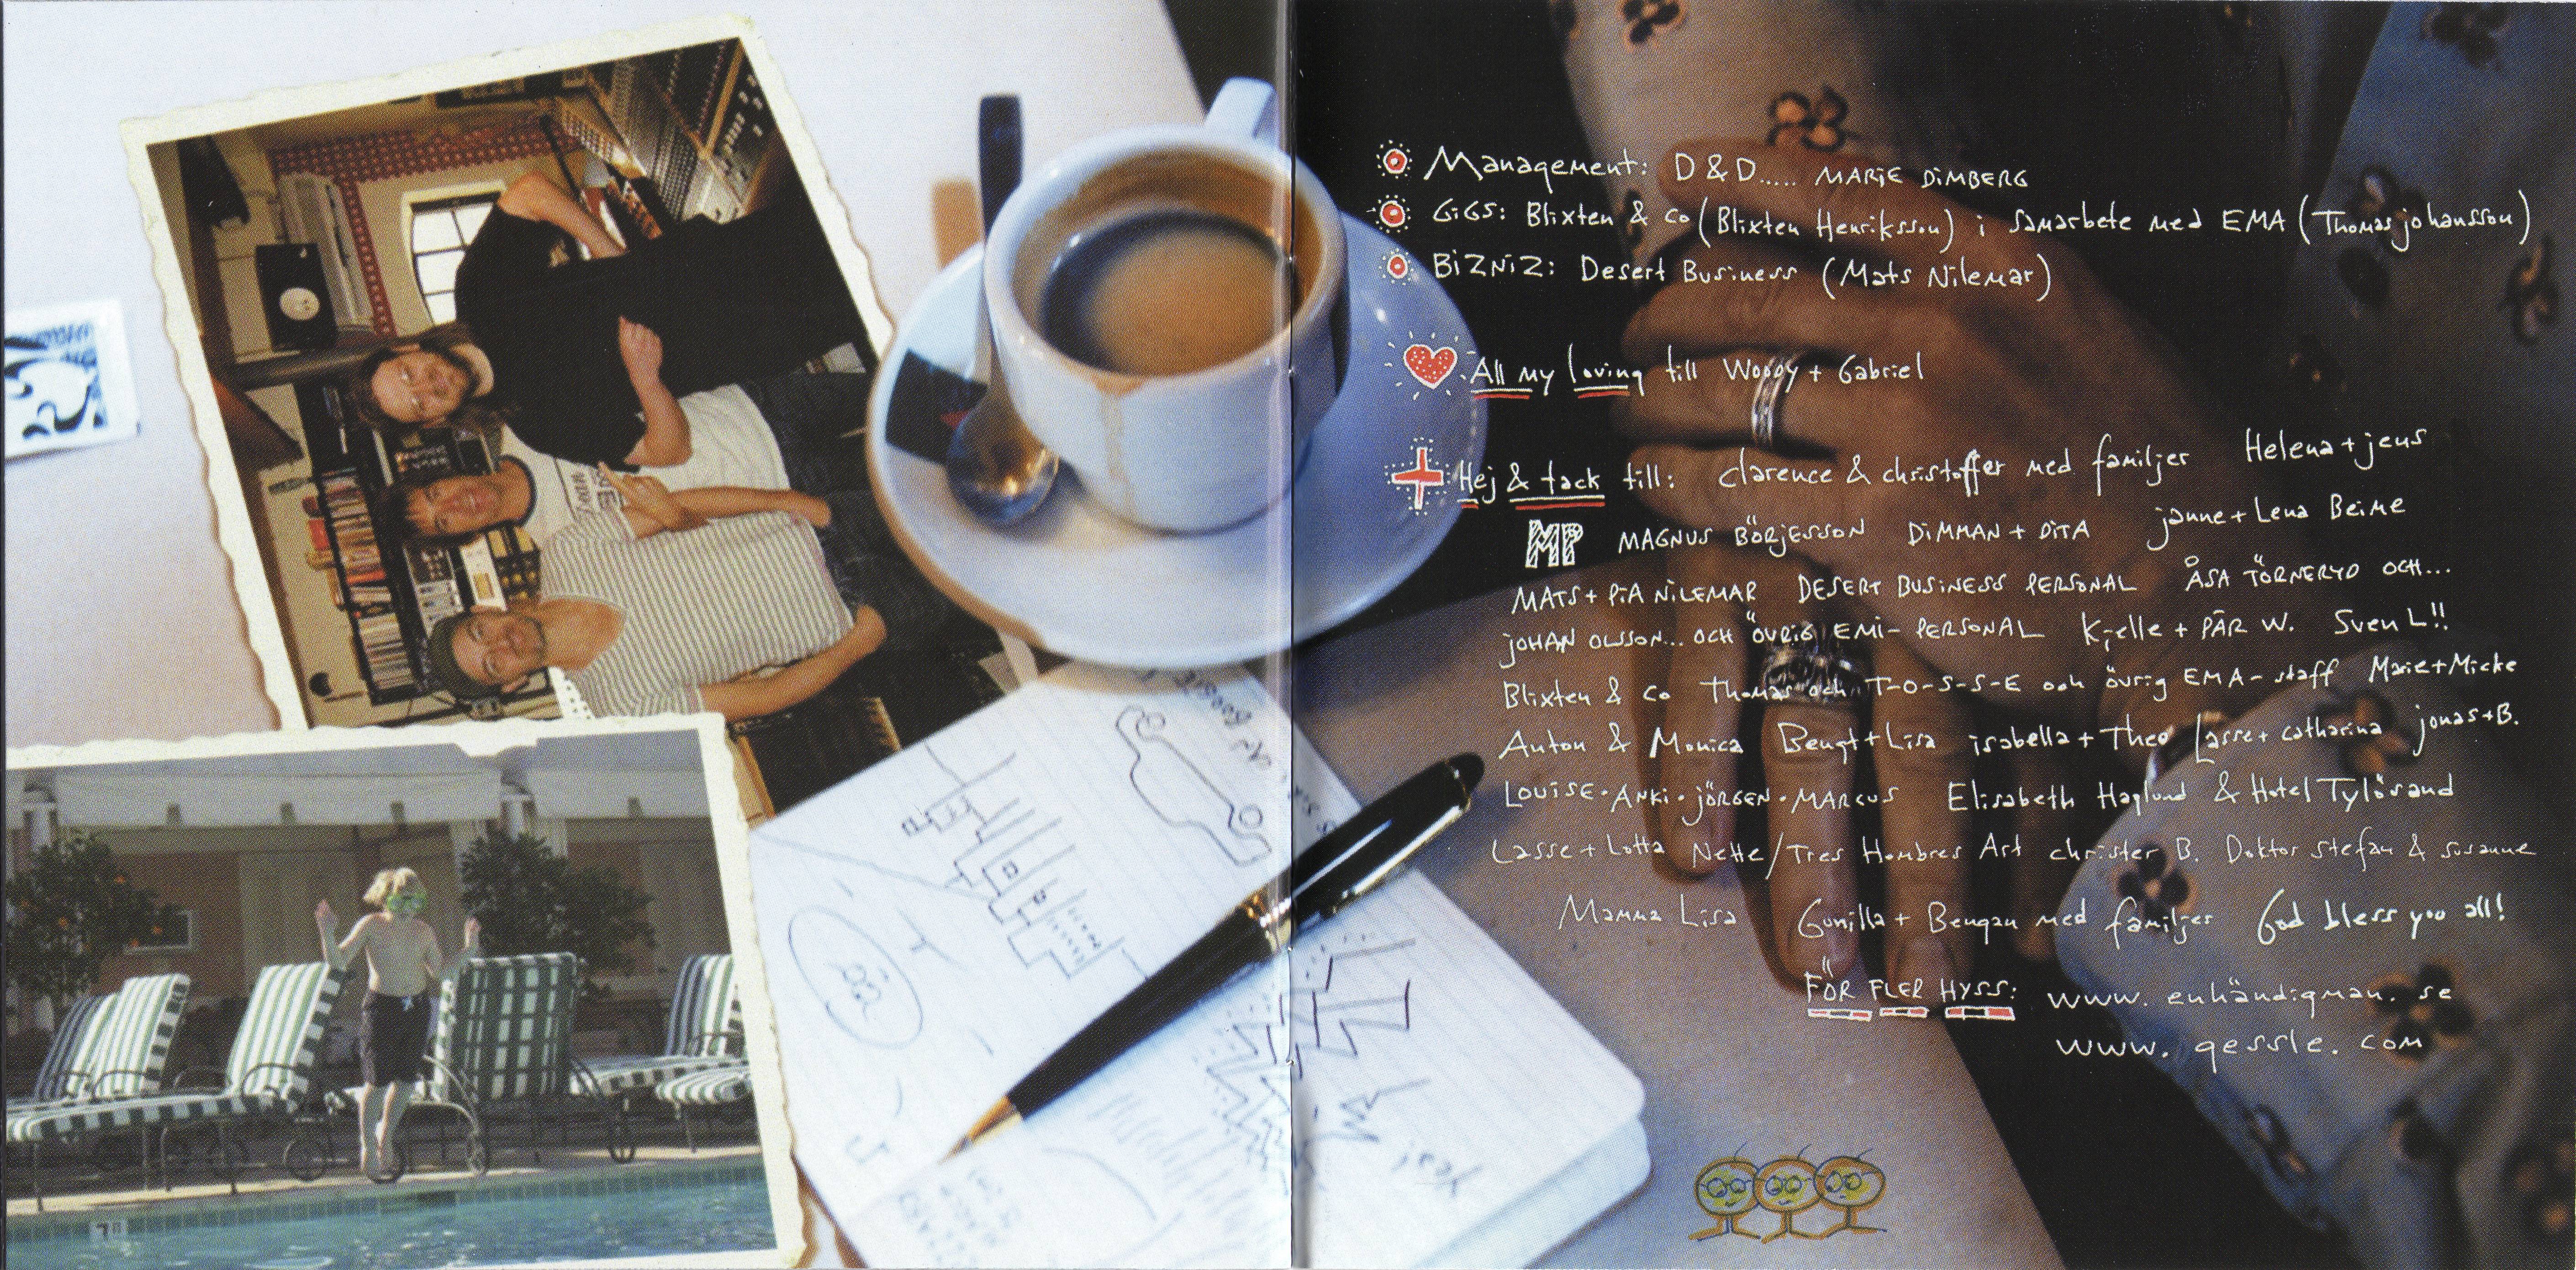 Management: D & D..... MARiE DiMBERG
GiGS: Blixten & Co (Blixten Henriksson) i samarbete med EMA (Thomas johansson)
BiZNiZ: Desert Business (Mats Nilemar)
All my loving till Woody + Gabriel
Hej & tack till: Clarence & christoffer med familjer Helena + jens
MP MAGNUS BÖRjESSON DiMMAN + DiTA janne + Lena Beime
MATS + PiA NiLEMAR DESERT BUSiNESS PERSONAL ÅSA TÖRNERYD OCH...
jOHAN OLSSON... OCH ÖVRiG EMi-PERSONAL Kjelle + PÄR W. Sven L!!
Blixten & Co Thomas och T-O-S-S-E och övrig EMA-staff Marie + Micke
Anton & Monica Bengt + Lisa isabella + Theo Lasse + catharina jonas + B.
LOUiSE · ANKi · jÖRGEN · MARCUS Elisabeth Haglund & Hotel Tylösand
Lasse + Lotta Nette/Tres Hombres Art christer B. Doktor Stefan & Susanne
Mamma Lisa Gunilla + Bengan med familjer God bless you all!
FÖR FLER HYSS: www.enhändigman.se
www.gessle.com